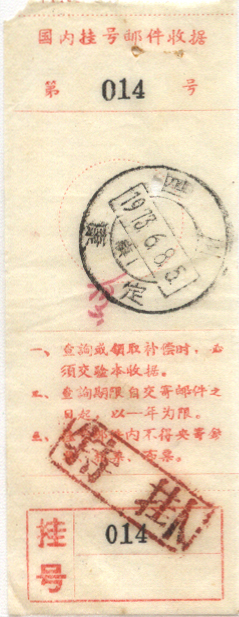 国内挂号邮件收据
第 014 号
1973.6.8.5
定
一、查詢或领取补偿时，必
须交验本收据。
二、查詢期限自交寄邮件之
日起，以一年为限。
三、邮件内不得夹寄
票、
挂
挂号
014